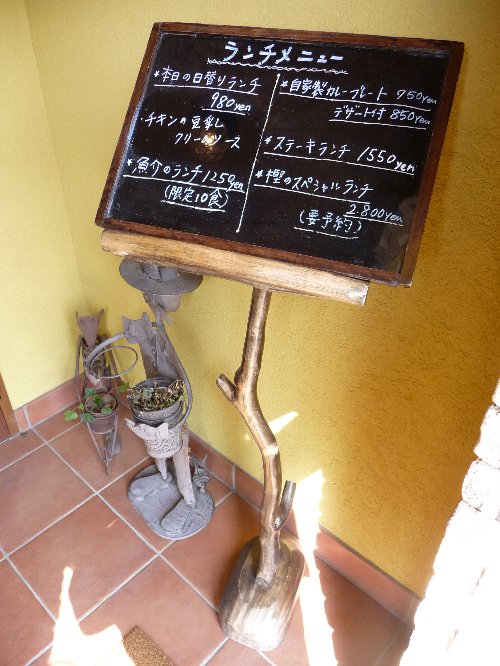 ランチメニュー
*本日の日替りランチ
980yen
チキンの豆乳
クリームソース
*魚介のランチ1250yen
(限定10食)
*自家製カレープレート 750yen
デザート付 850yen
*ステーキランチ 1550yen
*樫のスペシャルランチ
2.800yen
(要予約)